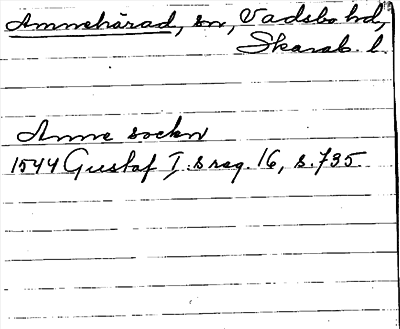 Amnehärad, sn, Vadsbo hd,
Skarab. l.
Amne sockn
1544 Gustaf I:s reg. 16, s. 735